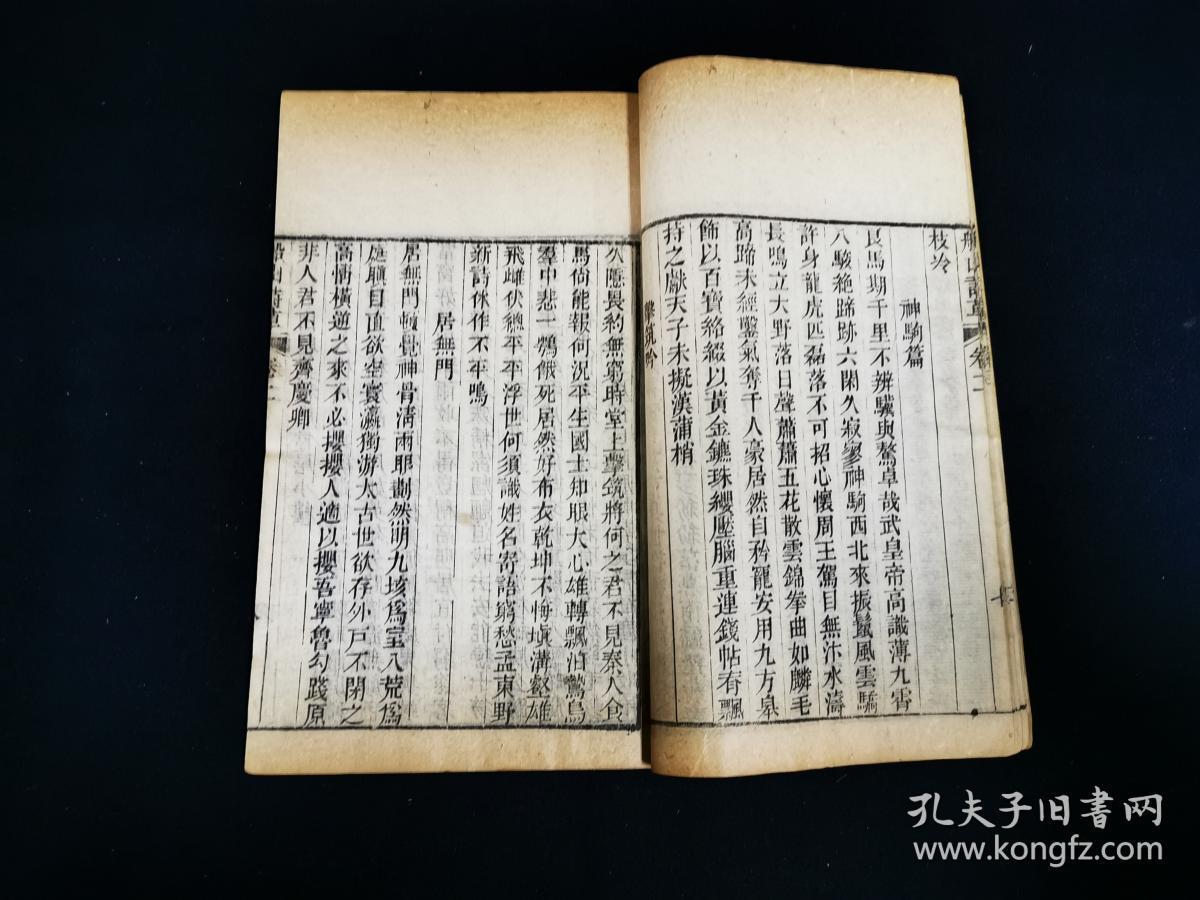 船山詩草 卷二
枝冷
神駒篇
良馬期千里不辨驥與驁卓哉武皇帝高識薄九霄
八駿絶蹄跡六閑久寂寥神駒西北來振鬣風雲驕
許身龍虎匹磊落不可招心懷周王駕目無汴水濤
長鳴立大野落日聲蕭蕭五花散雲錦拳曲如麟毛
高蹄未經鑿氣奪千人豪居然自矜寵安用九方皋
飾以百寶絡綴以黃金鑣珠纓壓腦重連錢帖春飄
持之獻天子未擬漢蒲梢
擊筑吟
久隱畏約無窮時堂上擊筑將何之君不見秦人食
馬尚能報何況平生國士知眼大心雄轉飄泊鷙鳥
羣中悲一鶚餓死居然好布衣乾坤不悔塡溝壑雄
飛雌伏總平平浮世何須識姓名寄語窮愁孟東野
新詩休作不平鳴
居無門
居無門頓覺神骨清雨耶劃然明九垓爲室八荒爲
庭聰目直欲空寰瀛獨游太古世欲存外戸不閉之
高情橫逆之來不必攖攖人適以攖吾寧魯勾踐原
非人君不見齊慶卿
船山詩草 卷二
孔夫子旧书网
www.kongfz.com